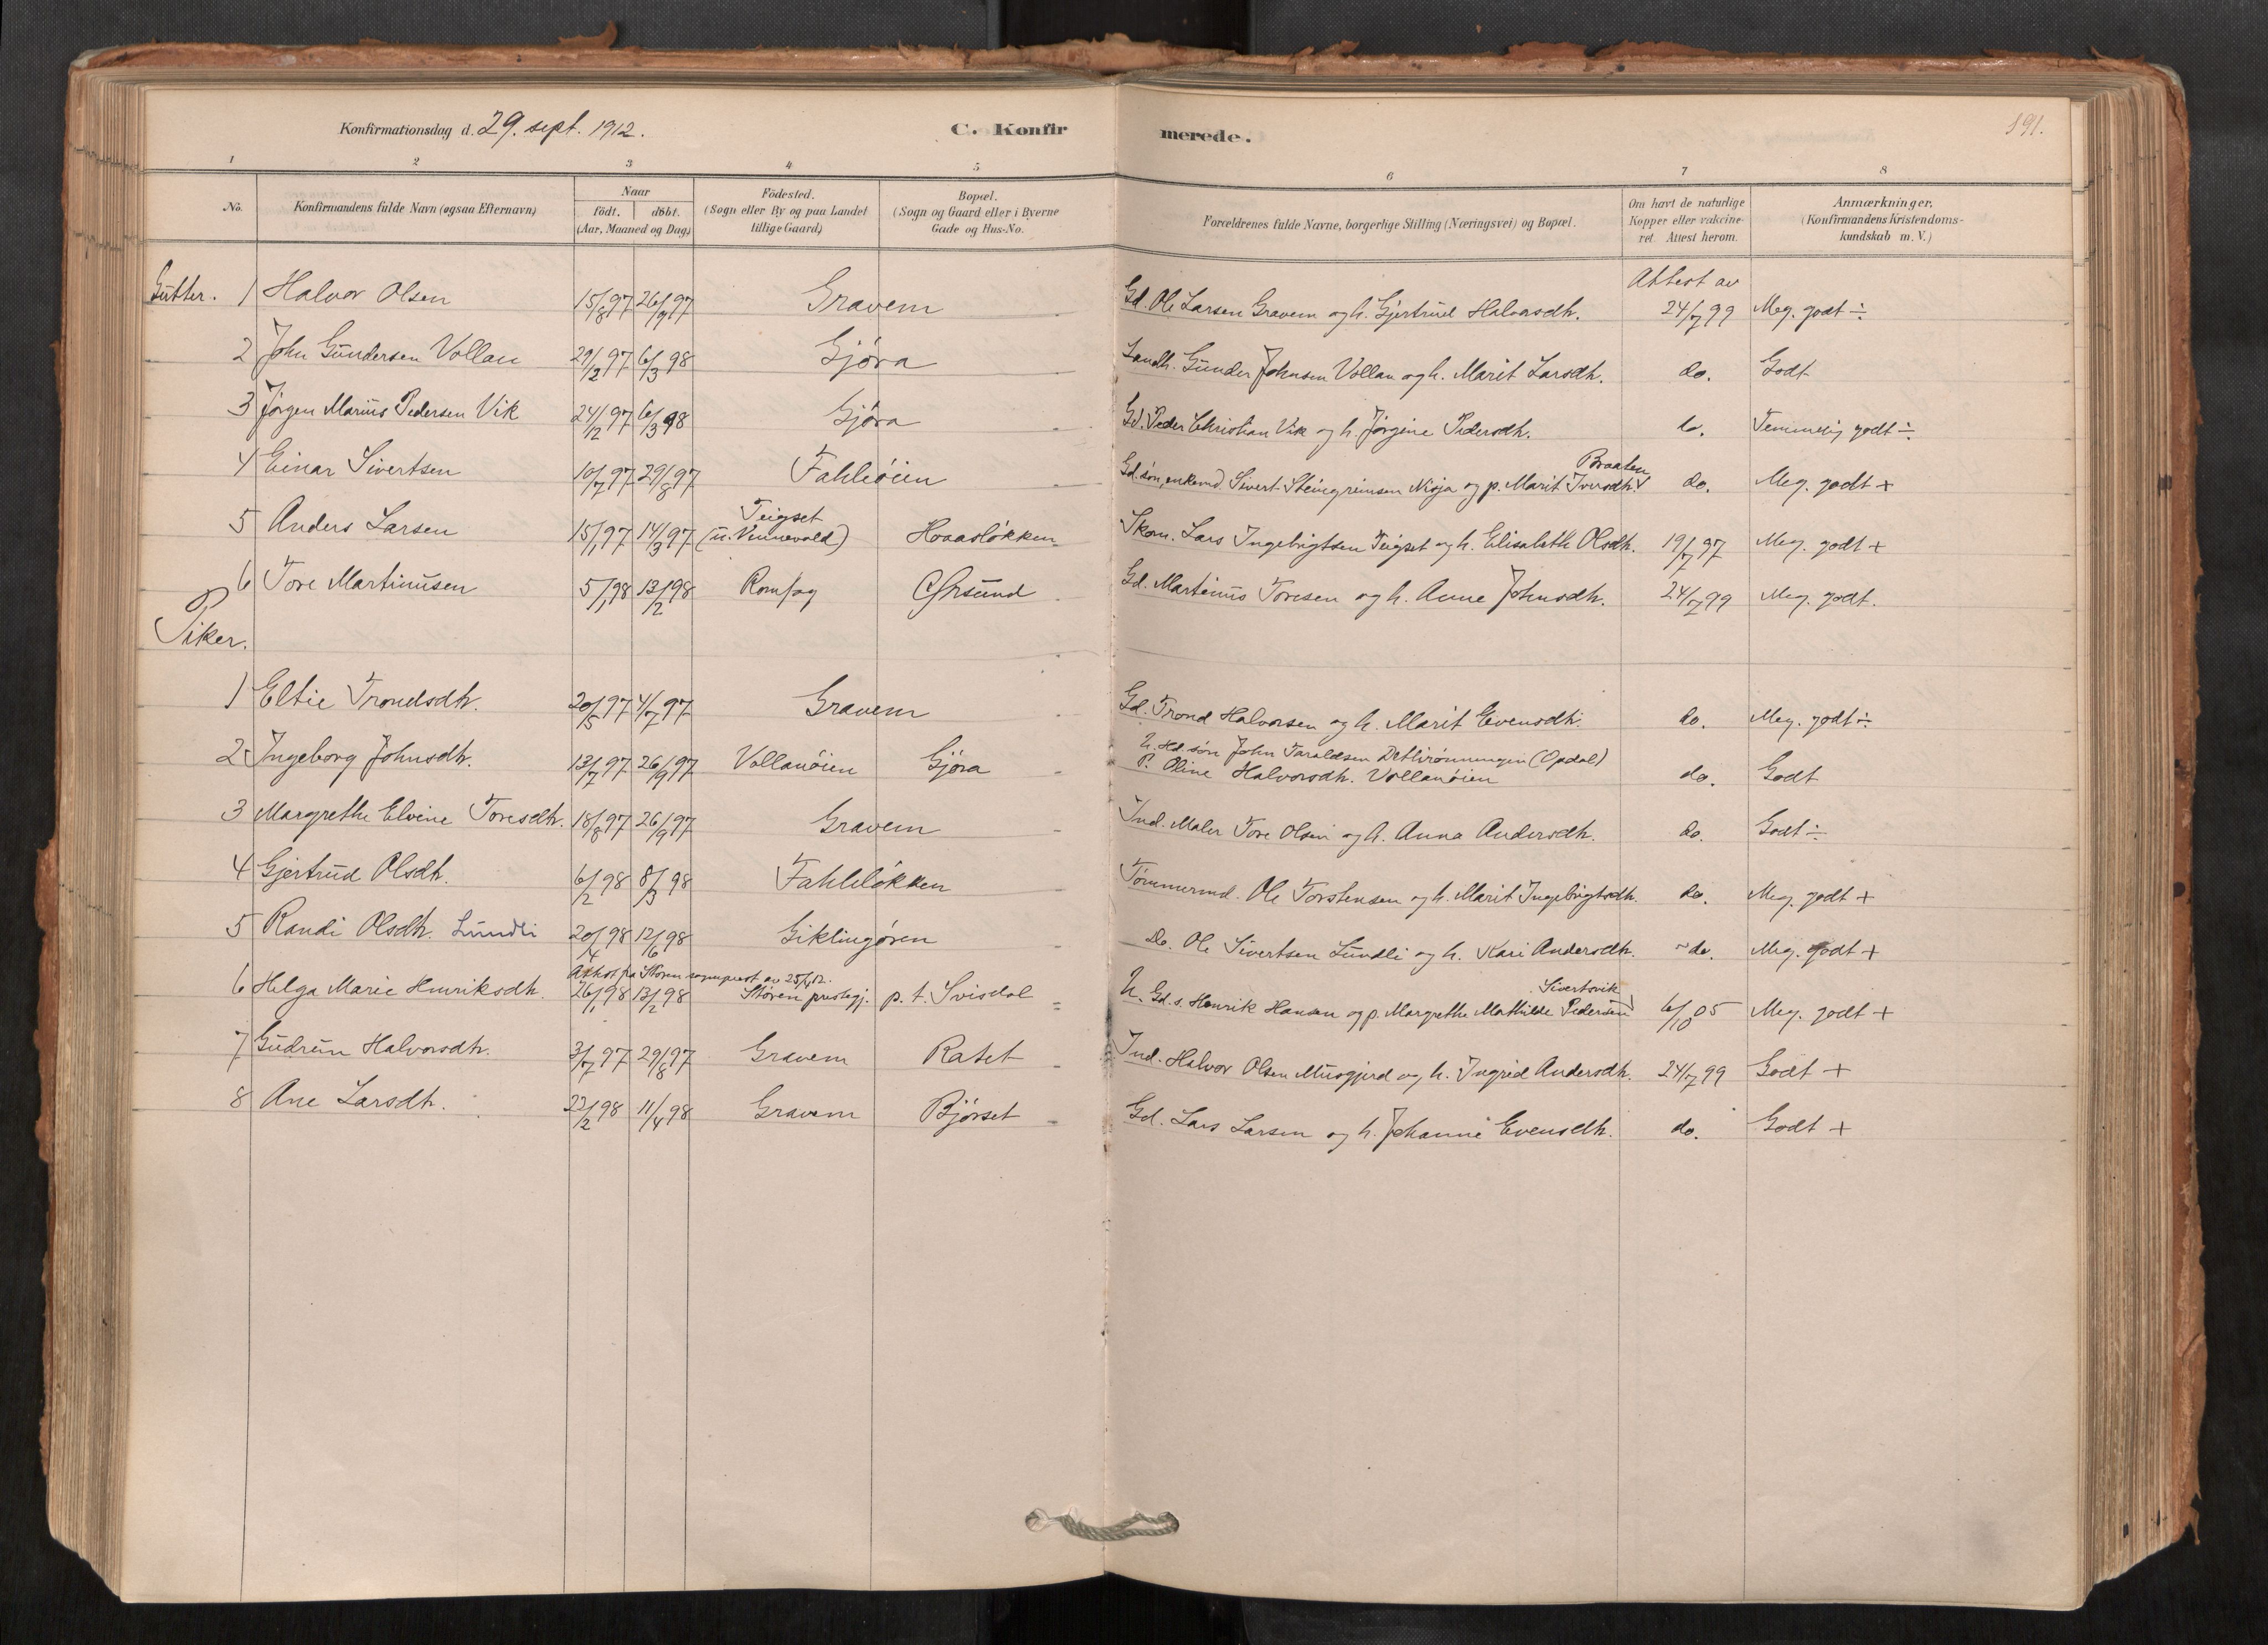 Konfirmationsdag d. 29. sept. 1912. C. Konfirmerede. 191.
1 2 3 4 5 6 7 8
No. Konfirmandens fulde Navn (ogsaa Efternavn) Naar födt. döbt. (Aar, Maaned og Dag) Födested. (Sogn eller By og paa Landet tillige Gaard) Bopæl. (Sogn og Gaard eller i Byerne Gade og Hus-No. Forældrenes fulde Navne, borgerlige Stilling (Næringsvei) og Bopæl. Om havt de naturlige Kopper eller vakcineret. Attest herom. Anmærkninger. (Konfirmandens Kristendomskundskab m. V.)
Gutter. 1 Halvor Olsen 15/8 97 26/9 97 Gravem Gd. Ole Larsen Gravem og h. Gjertrud Halvorsdtr. Attest av 24/7 99 Meg. godt ÷
2 John Gundersen Vollan 29/12 97 6/3 98 Gjöra Landh. Gunder Johnsen Vollan og h. Marit Larsdtr. do. Godt
3 Jörgen Marius Pedersen Vik 24/12 97 6/3 98 Gjöra Gd. Peder Christian Vik og h. Jörgine Pedersdtr. do. Temmelig godt ÷
4 Einar Sivertsen 10/7 97 29/8 97 Fahleöien Gd. sön, enkemd. Sivert Steingrimsen Nisja og p. Marit Iversdtr. Braaten do. Meg. godt +
5 Anders Larsen 15/1 97 14/3 97 Teigset (u. Vennevold) Hoaaslökken Skom. Lars Ingebrigtsen Teigset og h. Elisabeth Olsdtr. 19/7 97 Meg. godt +
6 Tore Martinusen 5/1 98 13/2 98 Romfog Grsund Gd. Martinus Toresen og h. Anne Johnsdtr. 24/7 99 Meg. godt.
Piker.
1 Eltie Trondsdtr. 20/5 97 4/7 97 Gravem Gd. Trond Halvorsen og h. Marit Evensdtr. do. Meg. godt ÷
2 Ingeborg Johnsdtr. 13/7 97 26/9 97 Vollanöien Gjöra U. Gd. sön John Taraldsen Detlirönningen (Opdal) P. Oline Halvorsdtr. Vollanöien do. Godt
3 Margrethe Elvine Toresdtr. 18/8 97 26/9 97 Gravem Ind. Maler Tore Olsen og h. Anna Andersdtr. do. Godt ÷
4 Gjertrud Olsdtr. 6/2 98 8/3 98 Fahlelökken Tömmermd. Ole Torstensen og h. Marit Ingebrigtsdtr. do. Meg. godt +
5 Randi Olsdtr. Lundli 20/4 98 12/6 98 Giklingören Do. Ole Sivertsen Lundli og h. Kari Andersdtr. do. Meg. godt +
Attest fra Stören sogneprest av 25/4 12.
6 Helga Marie Henriksdtr. 26/1 98 13/2 98 Stören prestegj. p. t. Svisdal U. Gd. s. Henrik Hansen og p. Margrethe Mathilde Pedersen Sivertsvik 6/10 05 Meg. godt +
7 Gudrun Halvorsdtr. 3/7 97 29/8 97 Gravem Ratet Ind. Halvor Olsen Musgjerd og h. Ingrid Andersdtr. 24/7 99 Godt +
8 Ane Larsdtr. 22/2 98 11/4 98 Gravem Björset Gd. Lars Larsen og h. Johanne Evensdtr. do. Godt +